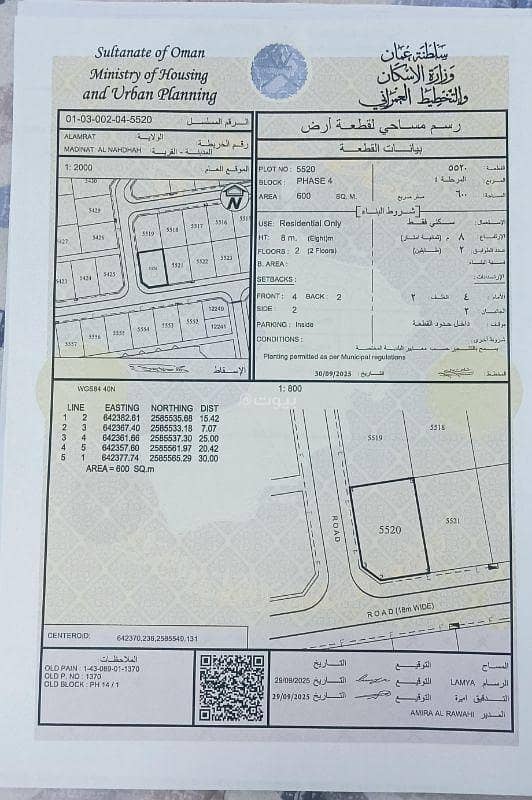 Sultanate of Oman
Ministry of Housing
and Urban Planning
سلطنة عمان
وزارة الإسكان
والتخطيط العمراني
01-03-002-04-5520 الرقم المسلسل
ALAMRAT الولاية:
MADINAT AL NAHDHAH المدينة - القرية: رقم الخريطة
1: 2000 الموقع العام
5429
5427
5426
5425
5424
5423
5519
5518
5517
5516
5521
5522
5523
5557
5556
5555
5554
5553
5552
12249
12241
N
الإسقاط
رسم مساحي لقطعة أرض
بيانات القطعة
PLOT NO : 5520 ٥٥٢٠ القطعة:
BLOCK : PHASE 4 المرحلة ٤ المربع:
AREA : 600 SQ. M. متر مربع ٦٠٠ المساحة:
[شروط البناء]
USE: Residential Only سكني فقط الإستعمال:
HT: 8 m. (Eight)m ٨ م (ثمانية امتار) الإرتفاع:
FLOORS : 2 (2 Floors) ٢ (طابقين) عدد الطوابق:
B. AREA :
SETBACKS : الإرتدادات:
FRONT : 4 BACK : 2 الخلف: ٢ الأمام: ٤
SIDE : 2 الجانبان: ٢
PARKING : Inside داخل حدود القطعة مواقف:
CONDITIONS : شروط أخرى:
Planting permitted as per Municipal regulations
30/09/2025 التاريخ: المخطط:
WGS84 40N
1: 800
LINE EASTING NORTHING DIST
1 2 642382.61 2585535.68 15.42
2 3 642367.40 2585533.18 7.07
3 4 642361.66 2585537.30 25.00
4 5 642357.60 2585561.97 20.42
5 1 642377.74 2585565.29 30.00
AREA = 600 SQ.m
5519
5518
5520
5521
ROAD
ROAD (18m WIDE)
بيوت
CENTEROID: 642370.236,2585549.131
الملاحظات
OLD PAIN : 1-43-089-01-1370
OLD P. NO : 1370
OLD BLOCK : PH 14 / 1
التاريخ التوقيع المساح
29/09/2025 التاريخ التوقيع LAMYA الرسام
29/09/2025 التاريخ التوقيع اميرة التدقيق
AMIRA AL RAWAHI المدير